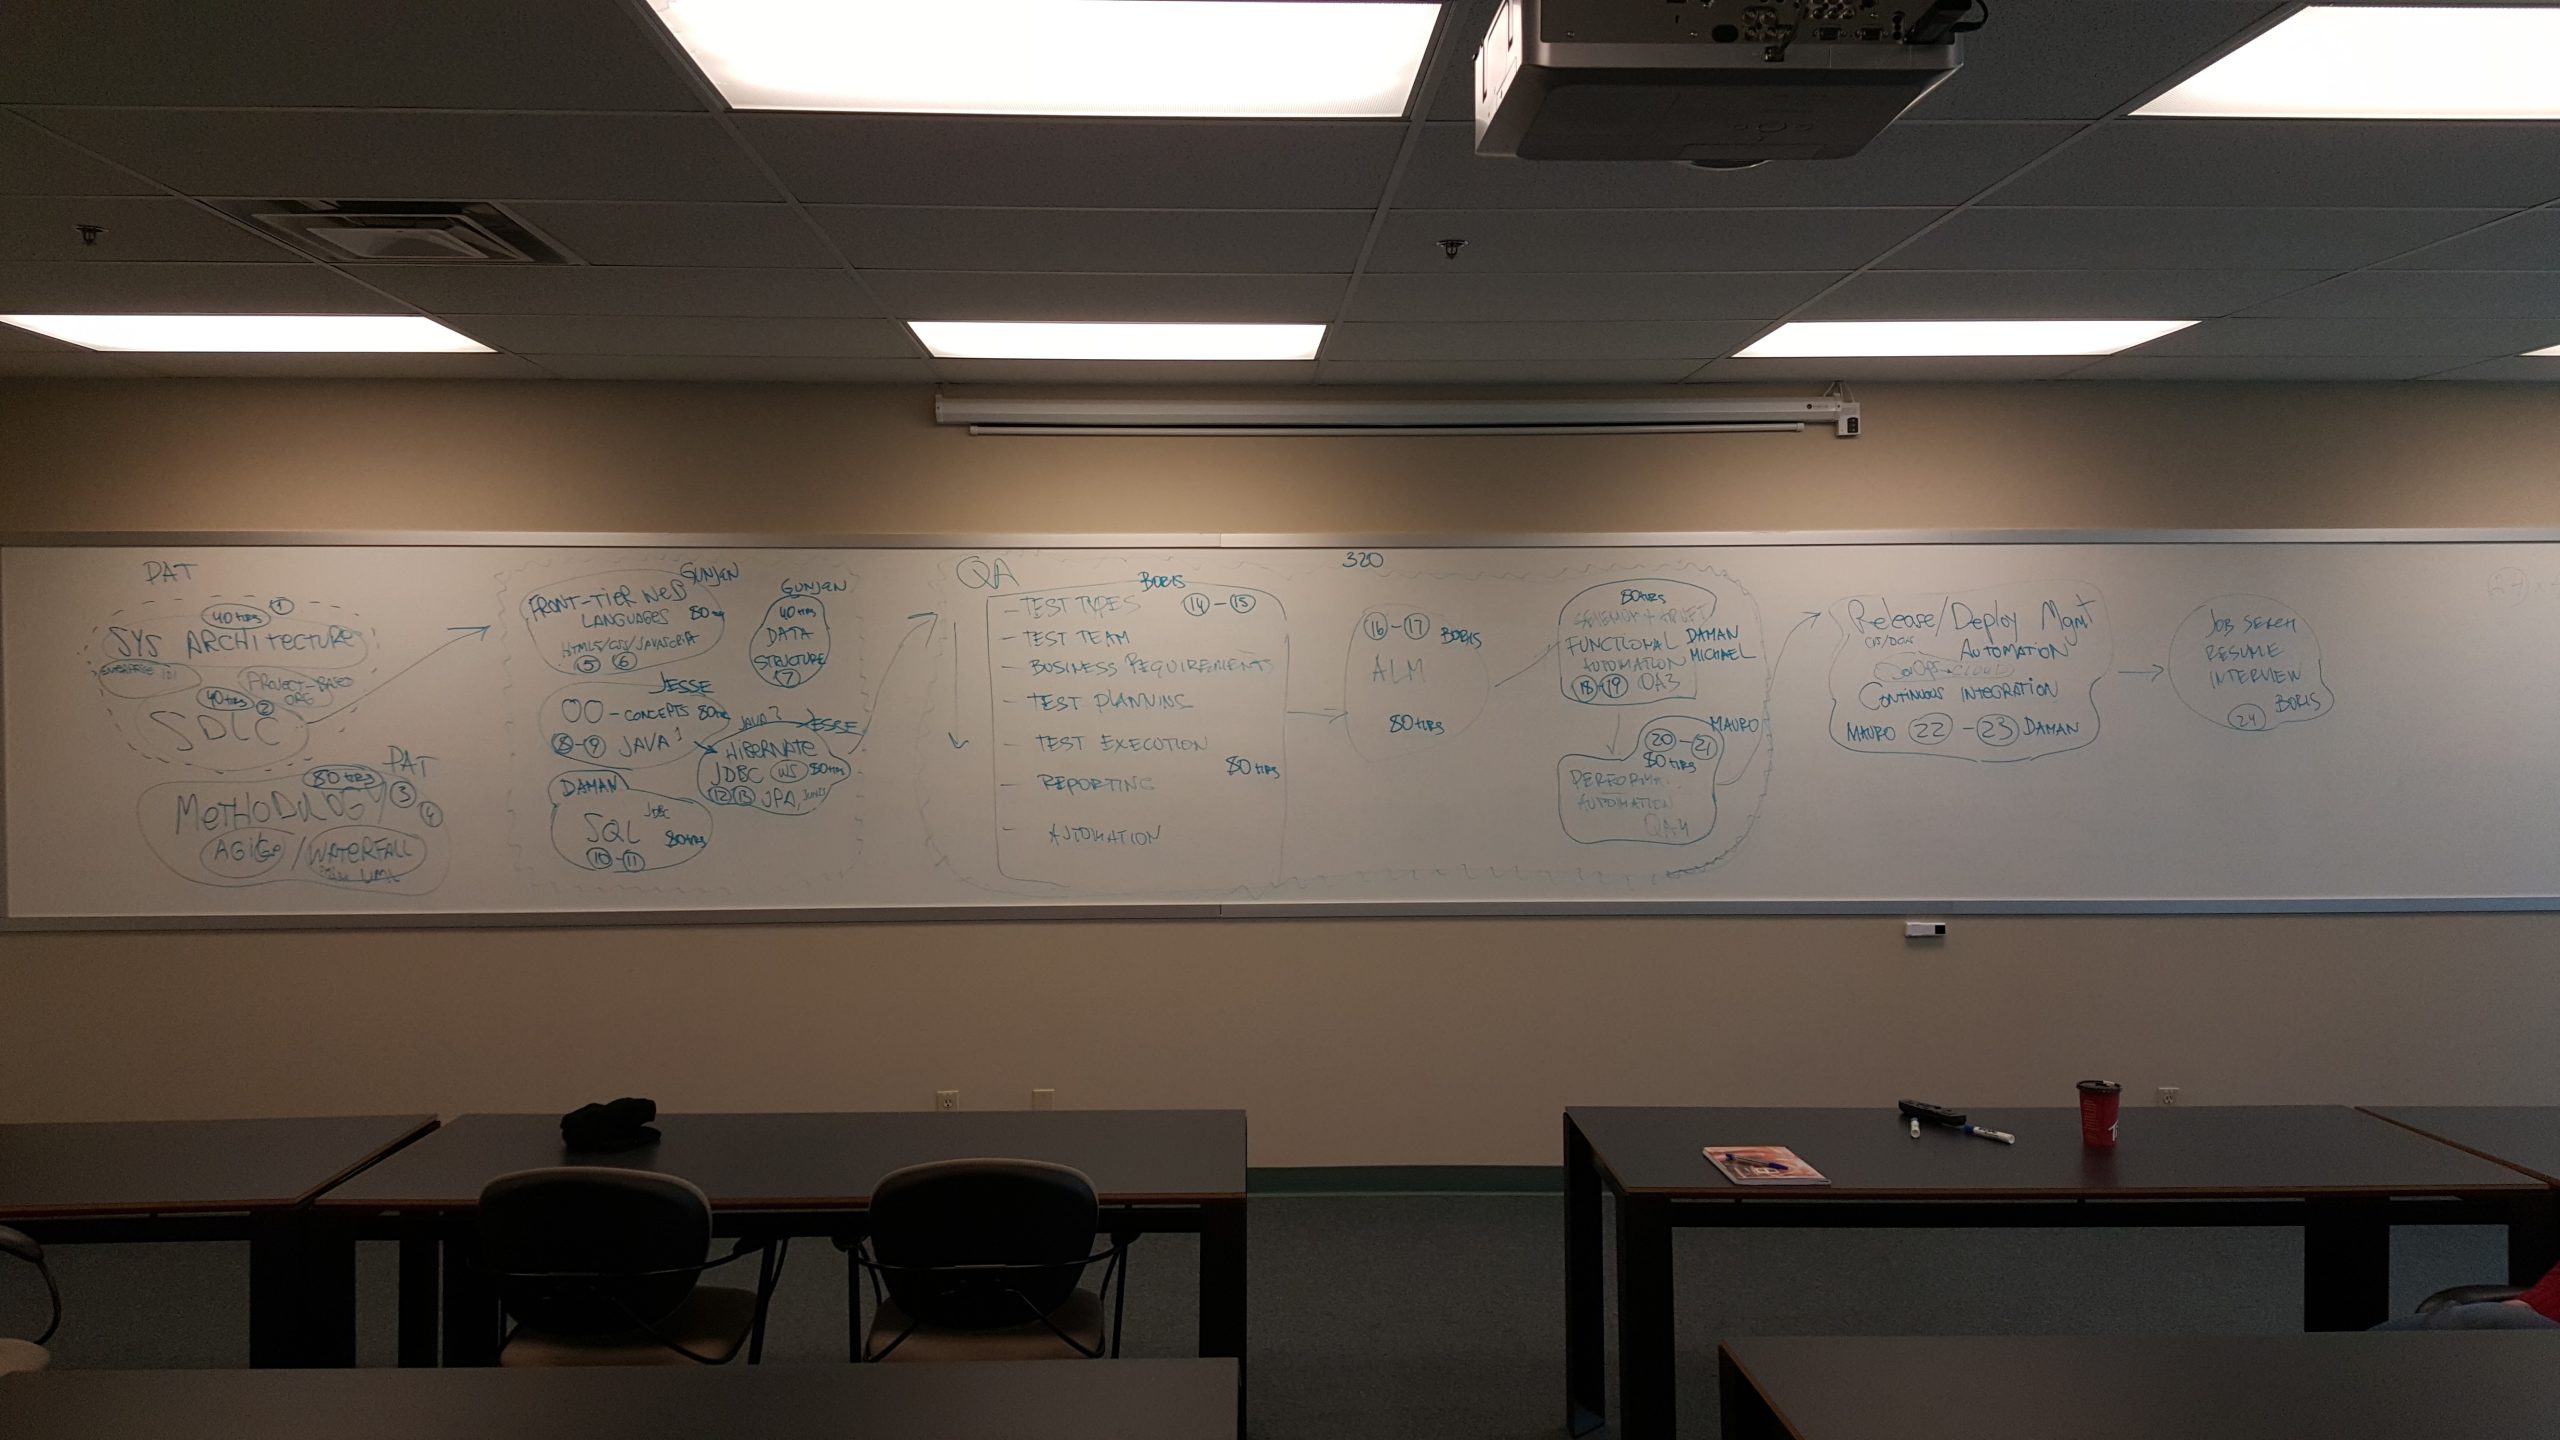 PAT
40 HRS 1
SYS ARCHITECTURE
ENTERPRISE 101
PROJECT-BASED
ORG
40 HRS 2
SDLC
PAT
80 HRS
METHODOLOGY 3 4
AGILE / WATERFALL
UML
GUNJAN
FRONT-TIER WEB
LANGUAGES 80 HRS
HTML5/CSS/JAVASCRIPT
5 6
GUNJAN
40 HRS
DATA
STRUCTURE
7
JESSE
OO - CONCEPTS 80 HRS
8-9 JAVA 1
JAVA 2 JESSE
HIBERNATE
JDBC WS 80 HRS
12 13 JPA, JUNIT
DAMAN
JDBC
SQL 80 HRS
10-11
QA
BORIS
- TEST TYPES 14-15
- TEST TEAM
- BUSINESS REQUIREMENTS
- TEST PLANNING
- TEST EXECUTION
- REPORTING 80 HRS
- AUTOMATION
320
16-17 BORIS
ALM
80 HRS
80 HRS
FUNCTIONAL DAMAN
AUTOMATION MICHAEL
18-19 QA3
MAURO
20-21
80 HRS
PERFORM.
AUTOMATION
QA4
Release/Deploy Mgmt
AUTOMATION
CONTINUOUS INTEGRATION
MAURO 22-23 DAMAN
JOB SERCH
RESUME
INTERVIEW
24 BORIS